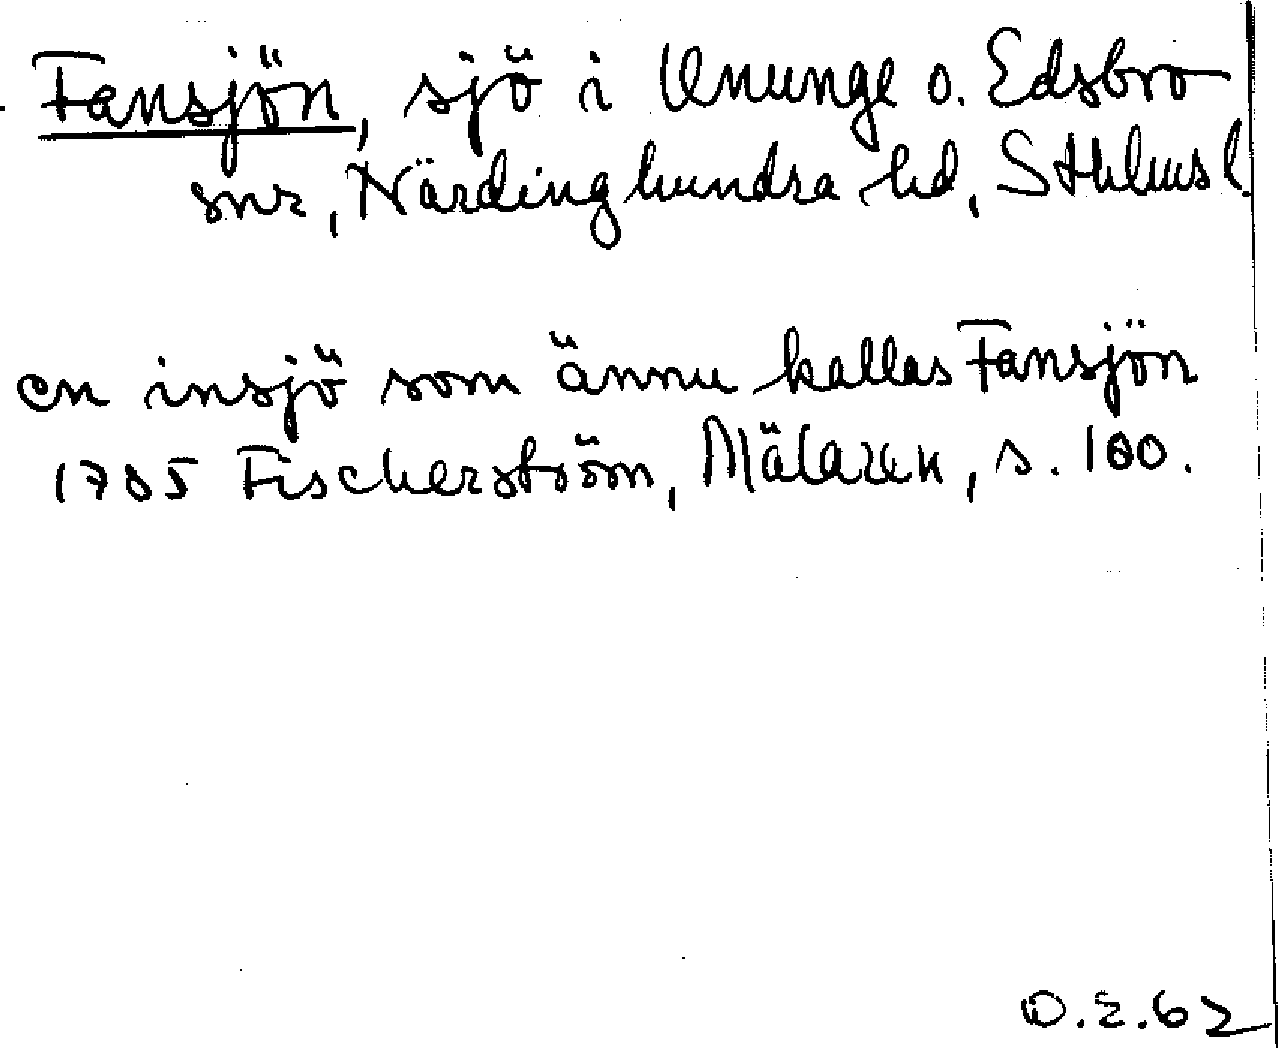 Fansjön, sjö i Ununge o. Edsbro
snr, Närdinghundra hd, Sthlms l.
en insjö som ännu kallas Fansjön
1785 Fischerström, Mälaren, s. 100.
O.E.62